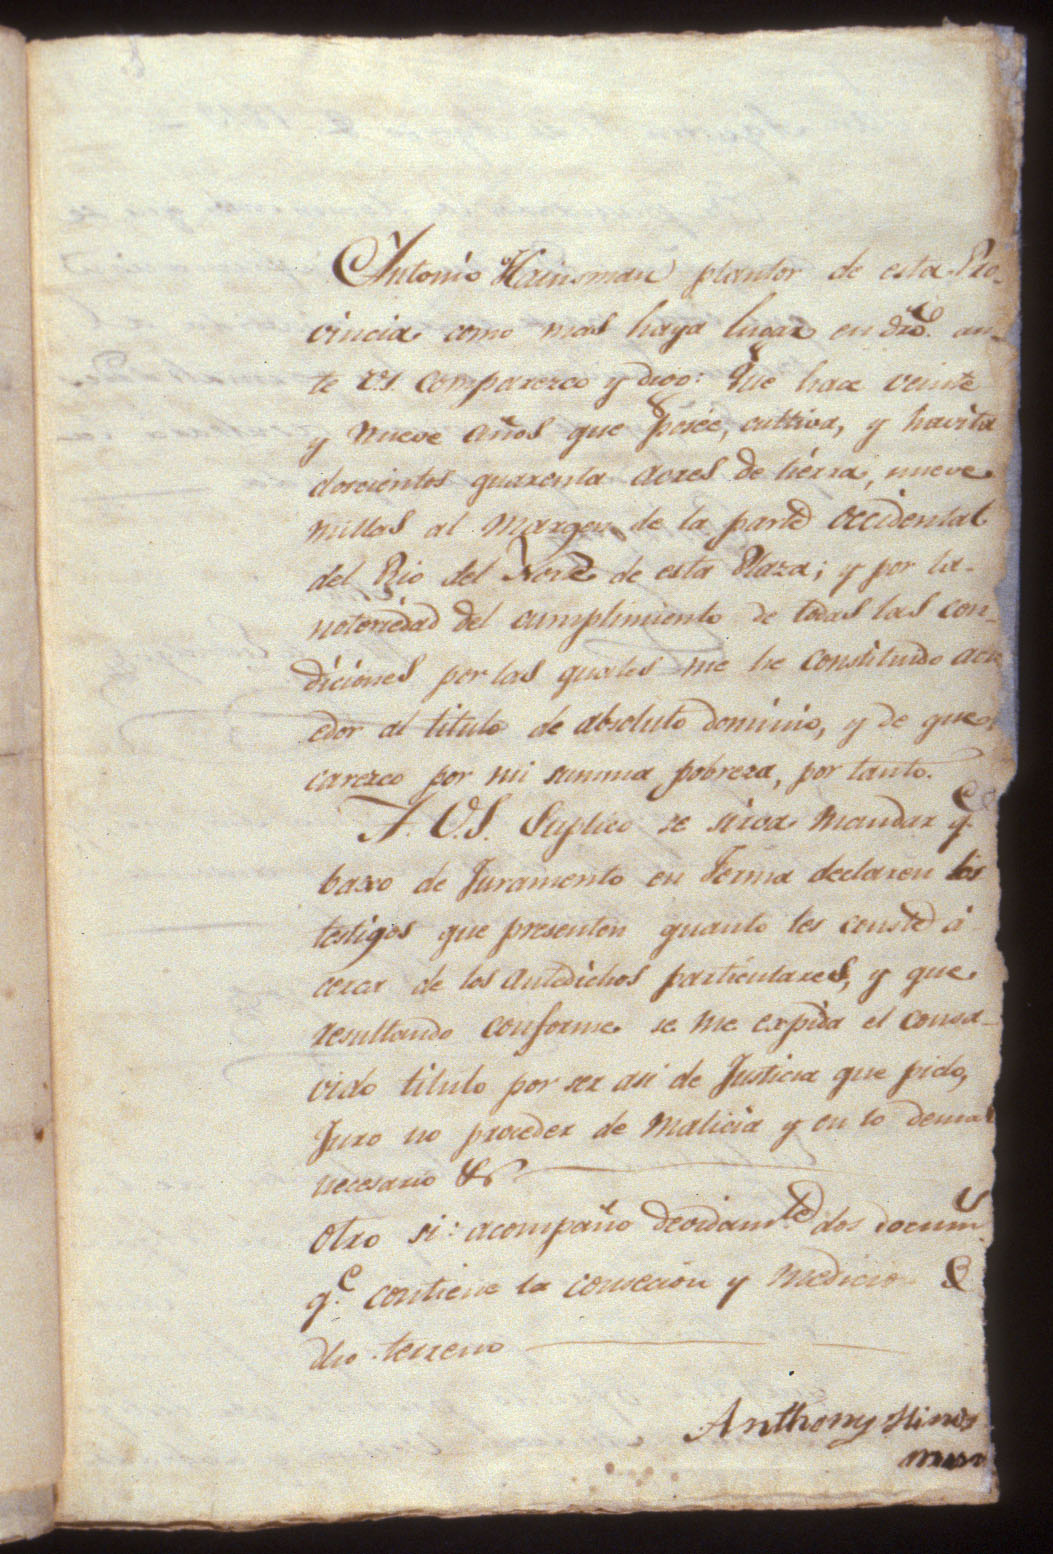 Antonio Hainsman plantor de esta Pro-
vincia como mas haya lugar en dro. an-
te V.S. comparezco y digo: Que hace veinte
y nueve años que poseé, cultiva, y havita
doscientos quarenta acres de tiérra, nueve
millas al margen de la parte occidental
del Rio del Norte de esta Plaza; y por la
notoriedad del cumplimiento de todas las con-
diciones por las quales me he constituido acre
edor al titulo de absoluto dominio, y de que
carezco por mi summa pobreza, por tanto.
A. V.S. Suplico se sirva mandar q.e
baxo de Juramento en forma declaren los
testigos que presenten quanto les conste á
cerca de los antedichos particulares, y que
resultando conforme se me expida el consa-
vido titulo por ser asi de Justicia que pido,
Juro no proceder de malicia y en lo demas
necesario &a
Otro si: acompaño devidam.te dos docum.s
q.e contiene la consecion y medicion
dho terreno
Anthony Hinds
man